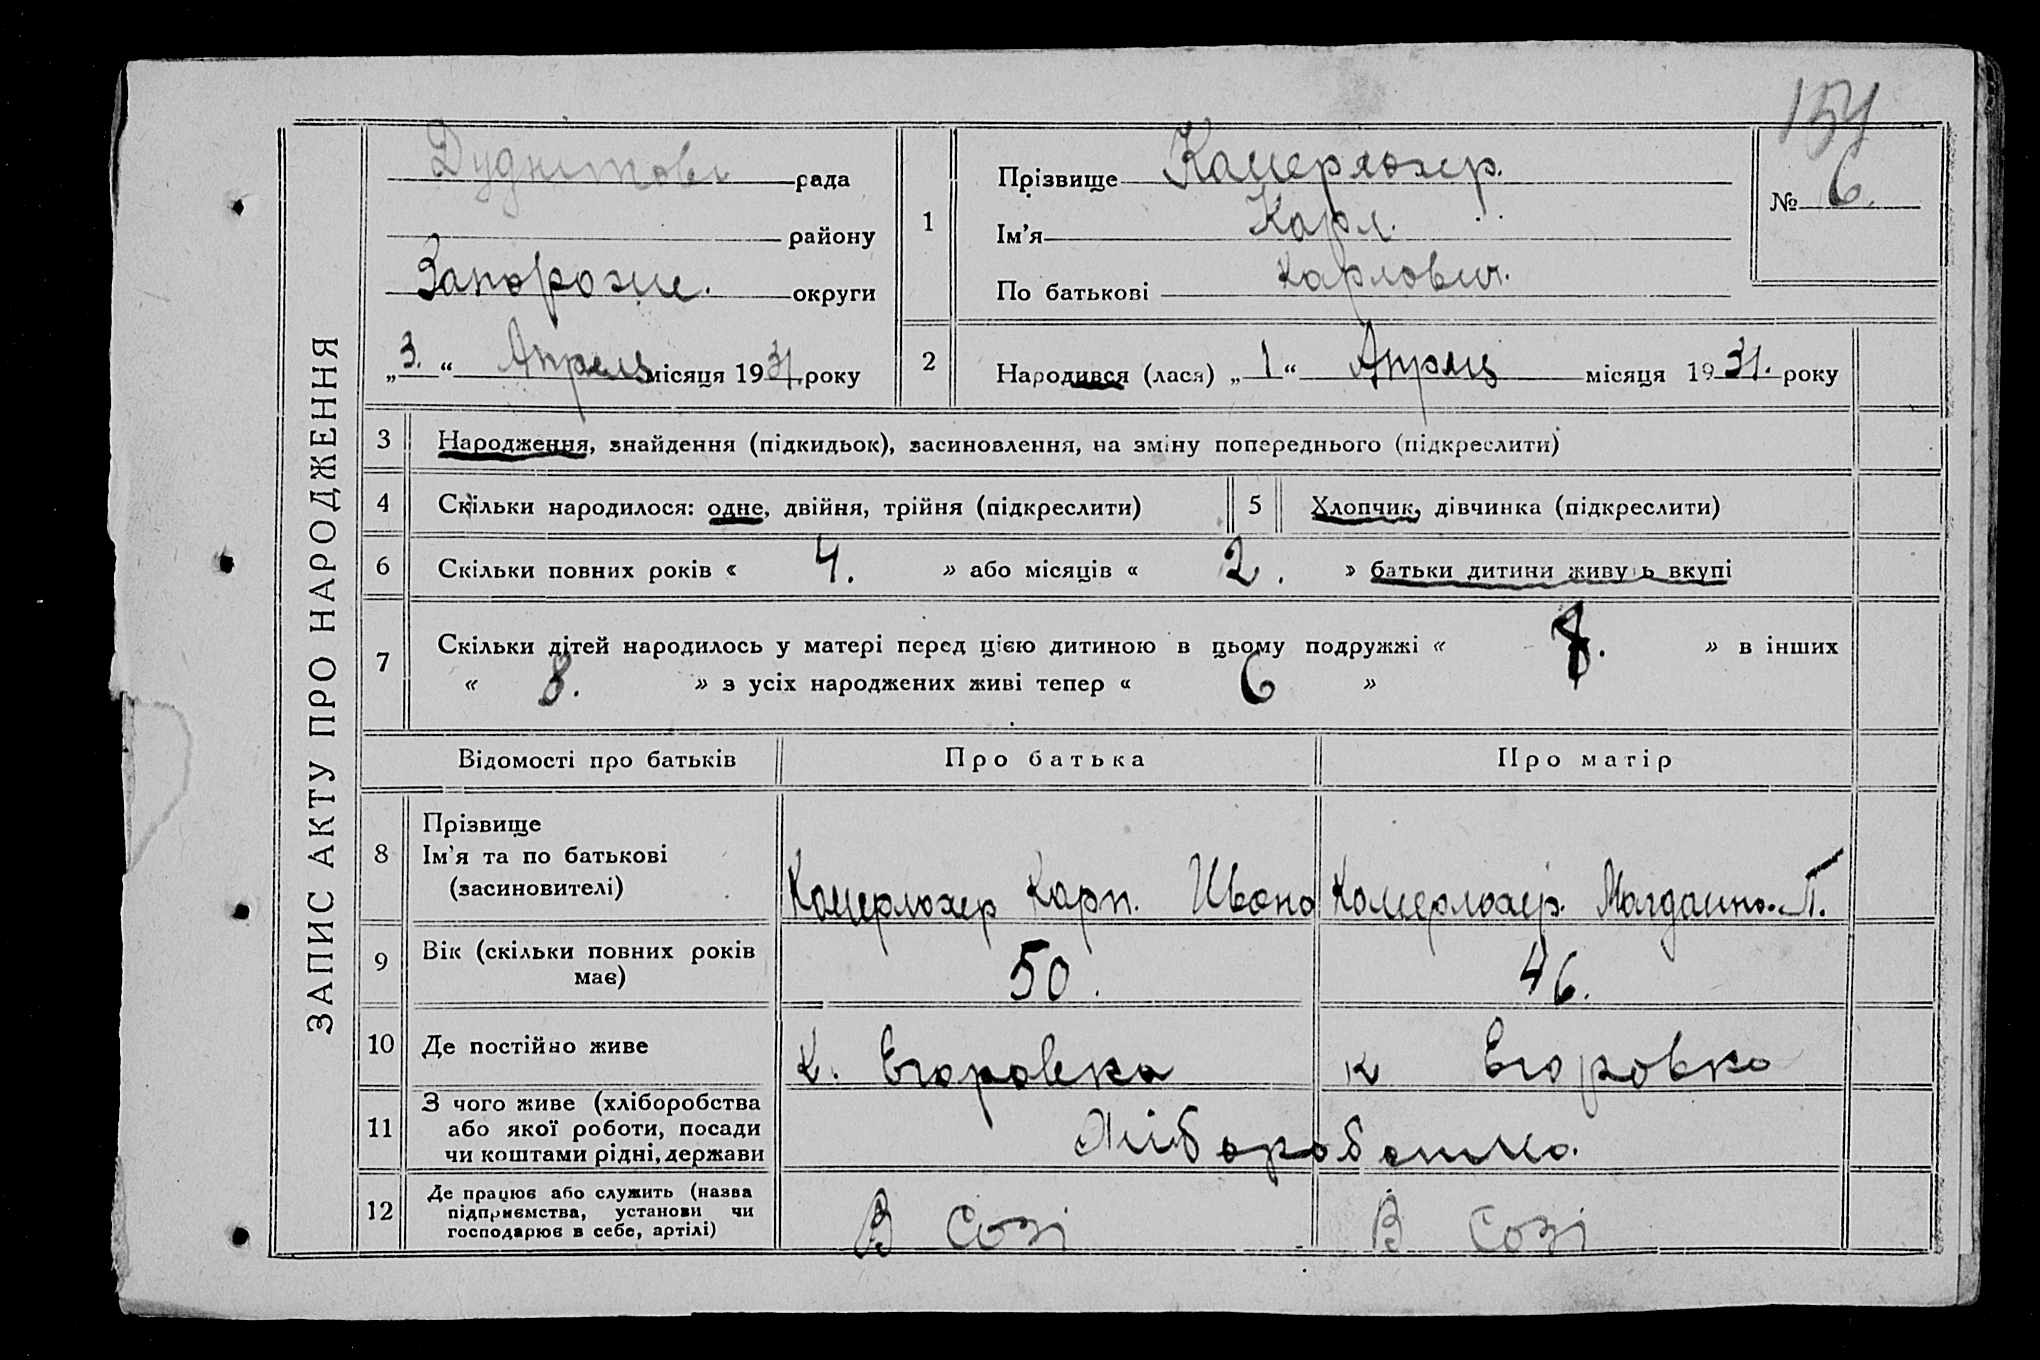 154
ЗАПИС АКТУ ПРО НАРОДЖЕННЯ
рада
району
Запорожже. округи
„3.“ Апрель місяця 1931 року
1
Прізвище Камерлохер.
Ім’я Карл.
По батькові Карлович.
№ 6.
2
Народився (лася) „1“ Апрель місяця 1931. року
3 Народження, знайдення (підкидьок), засиновлення, на зміну попереднього (підкреслити)
4 Скільки народилося: одне, двійня, трійня (підкреслити)
5 Хлопчик, дівчинка (підкреслити)
6 Скільки повних років « 4. » або місяців « 2. » батьки дитини живуть вкупі
7 Скільки дітей народилось у матері перед цією дитиною в цьому подружжі « » в інших
« 8. » з усіх народжених живі тепер « 6 »
Відомості про батьків
Про батька
Про матір
8 Прізвище
Ім’я та по батькові
(засиновителі)
Камерлохер Карл. Ивано
Камерлохер. П.
9 Вік (скільки повних років
має)
50.
46.
10 Де постійно живе
к. Егоровка
к Егоровка
11 З чого живе (хліборобства
або якої роботи, посади
чи коштами рідні, держави
12 Де працює або служить (назва
підприємства, установи чи
господарює в себе, артілі)
В Созі
В Созі